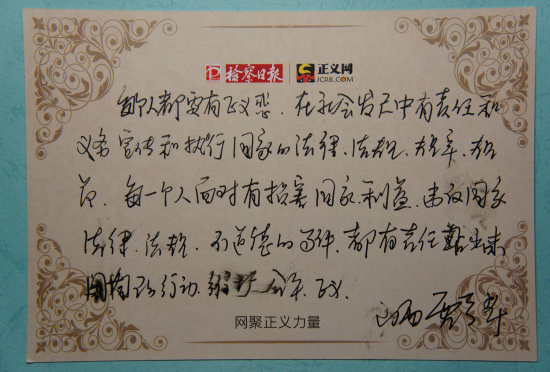 检察日报 正义网
JCRB.COM
每个人都要有正义感，在社会发展中有责任和
义务宣传和执行国家的法律、法规、
每一个人面对有损害国家利益、违反国家
法律、法规、不道德的事件，都有责任站出来
用 行动 公平、正义。
网聚正义力量
山西